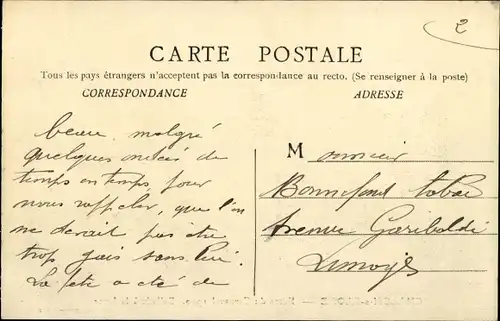 2
CARTE POSTALE
Tous les pays étrangers n'acceptent pas la correspondance au recto. (Se renseigner à la poste)
CORRESPONDANCE
ADRESSE
beau, malgré
quelques ondées de
temps en temps, pour
nous rappeler, que l'on
ne devait pas être
trop gais sans lui.
La fête a été de
Monsieur
Bonnefont tabac
Avenue Garibaldi
Limoges